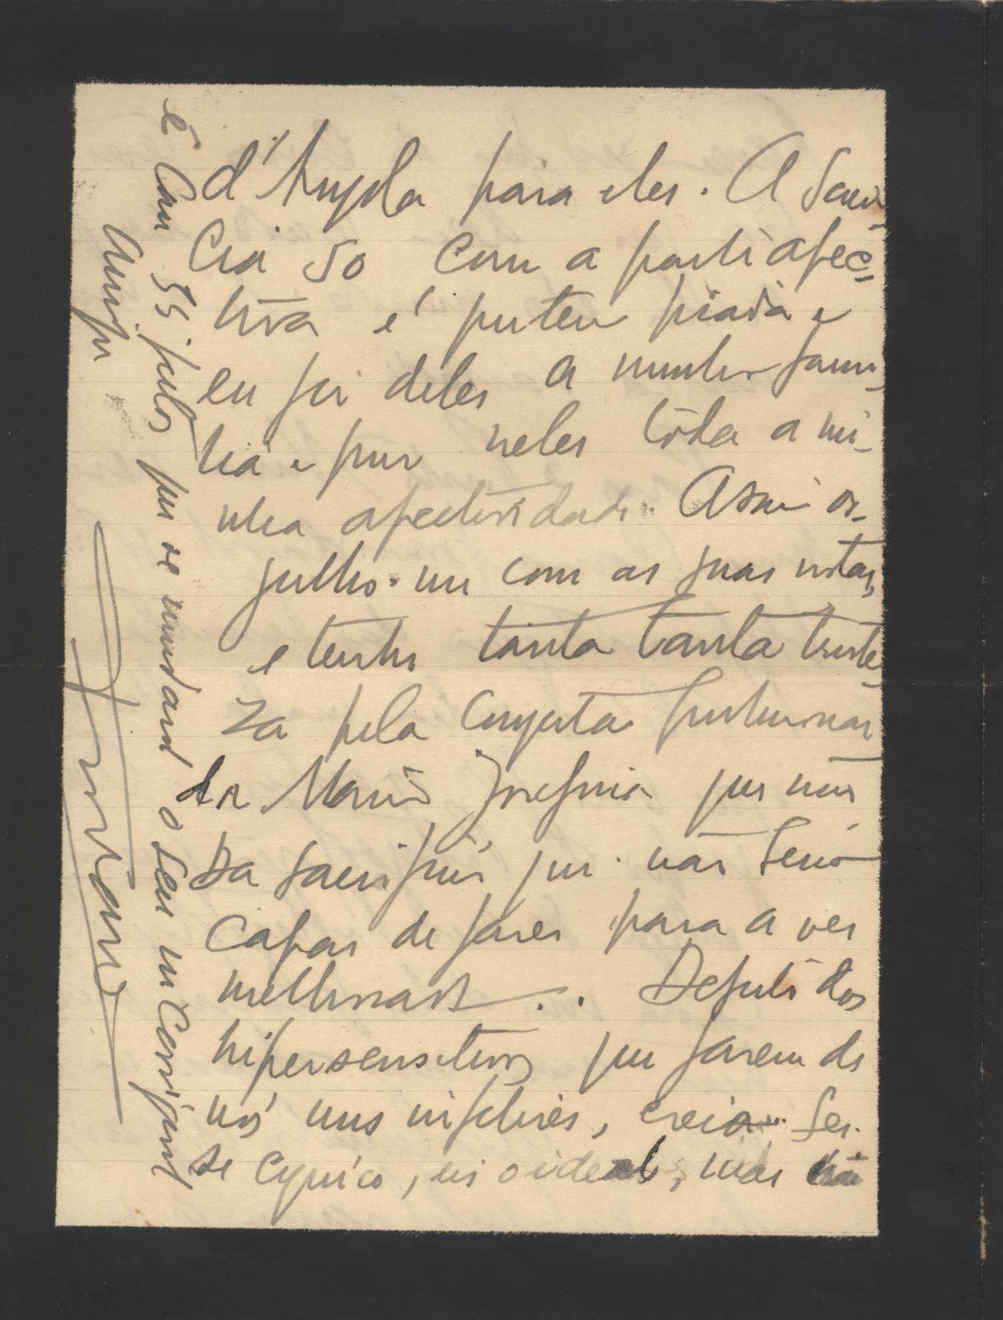 d'Angola para eles. A Sau
cia so com a parti afec-
tiva é
eu fiz deles a minha fami-
lia e pus neles tôda a mi-
nha afectividade. Assim or-
gulho-me com as suas notas,
e tenho tanta tanta triste-
za pela
da Maria Josefina que não
ha sacrificio que não seria
capaz de fazer para a ver
melhorada... Defeito dos
hipersensitivos que fazem de
nós uns infelizes, creia. Ser-
se cynico, eis o ideal, mas não
é com 55 felos que se mudará o seu incorrigivel
Amigo